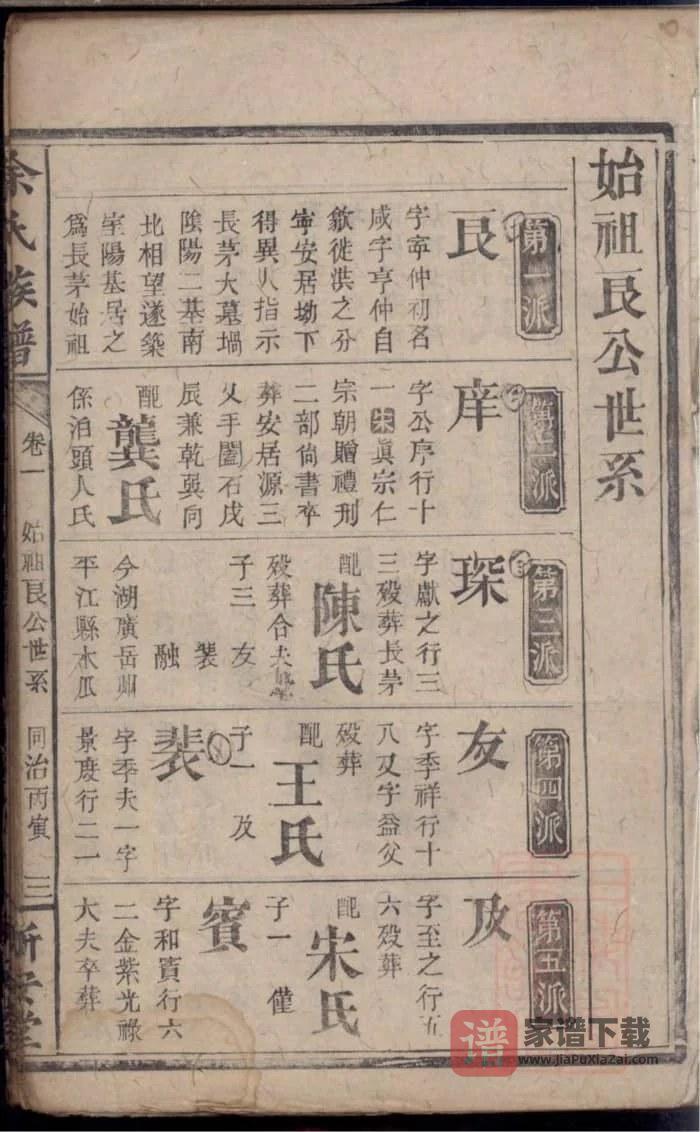 始祖艮公世系
第一派
艮
字寧仲初名
咸字亨仲自
歙徙洪之分
寧安居坳下
得異人指示
長茅大墓堝
陰陽二基南
北相望遂築
室陽基居之
爲長茅始祖
第二派
庠
字公序行十
一宋眞宗仁
宗朝贈禮刑
二部尙書卒
葬安居源三
乂手圖石戌
辰兼乾巽向
配
龔氏
係泊頭人氏
第三派
琛
字獻之行三
三歿葬長茅
配
陳氏
歿葬合夫塋
子三 友
裴
融
今湖廣岳州
平江縣木瓜
第四派
友
字季祥行十
八又字益父
歿葬
配
王氏
子一 及
裴
字季夫一字
景度行二一
第五派
及
字至之行五
六歿葬
配
宋氏
子一 僅
賓
字和賓行六
二金紫光祿
大夫卒葬
余氏族譜
卷一
始祖艮公世系
同治丙寅
三
新安堂
谱 家谱下载
www.jiaPuXiazai.com